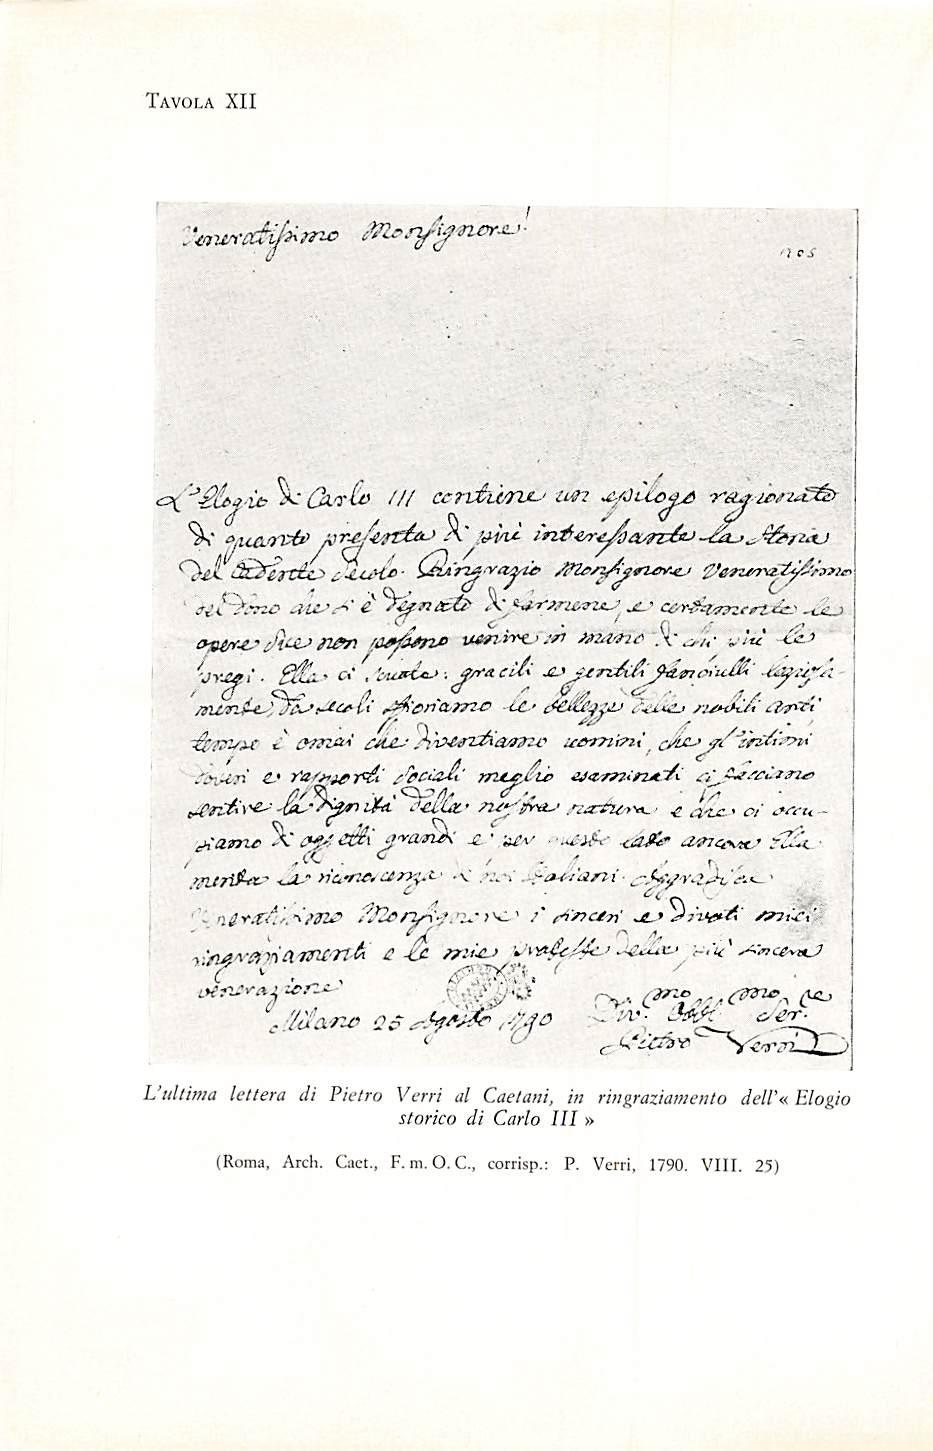 TAVOLA XII
Veneratissimo Monsignore!
L'Elogio di Carlo III contiene un epilogo ragionato
di quanto presenta di più interessante la Storia
del cadente secolo. Ringrazio Monsignore Veneratissimo
del dono che si è degnato di farmene, e certamente le
opere sue non possono venire in mano di chi più le
pregi. Ella ci scuote: gracili e gentili fanciulli
da secoli sfioriamo le bellezze delle nobili arti
tempo è omai che diventiamo uomini, che gl'intimi
doveri e rapporti sociali meglio esaminati ci facciano
sentire la dignità della nostra natura e che ci occu-
piamo di oggetti grandi e per questo lato ancora Ella
merita la riconoscenza di noi Italiani. Aggradisca
Veneratissimo Monsignore i sinceri e divoti miei
ringraziamenti e le mie proteste della più sincera
venerazione
Milano 25 Agosto 1790
Div.mo Obbl.mo Ser.re
Pietro Verri
L'ultima lettera di Pietro Verri al Caetani, in ringraziamento dell'« Elogio
storico di Carlo III »
(Roma, Arch. Caet., F. m. O. C., corrisp.: P. Verri, 1790. VIII. 25)